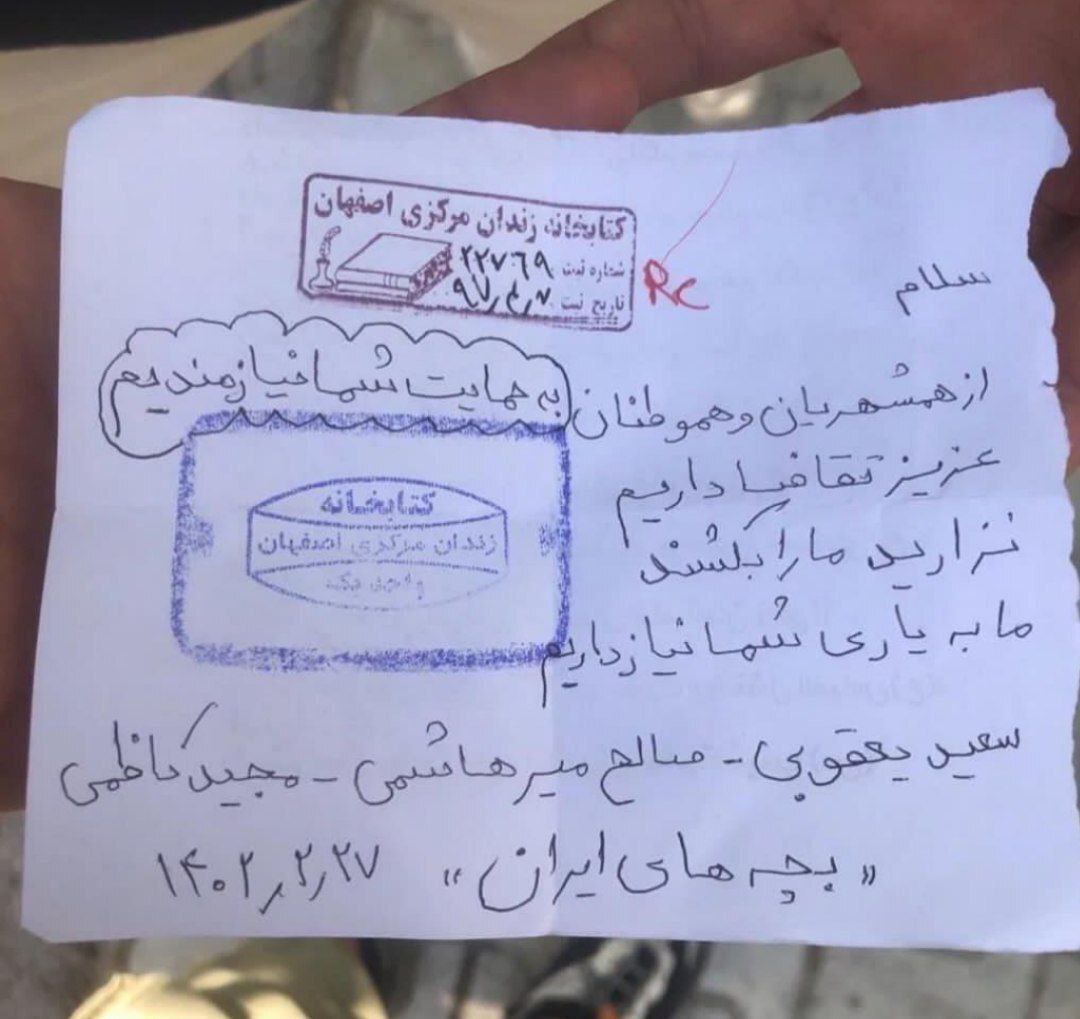 کتابخانه زندان مرکزی اصفهان
شماره ثبت ۲۲۷۶۹
تاریخ ثبت ۹۷٫۴٫۷
RC
سلام
از همشهریان و هموطنان
عزیز تقاضا داریم
نزارید ما را بکشند
ما به یاری شما نیاز داریم
به حمایت شما نیازمندیم
کتابخانه
زندان مرکزی اصفهان
واحد یک
سعید یعقوبی - صالح میرهاشمی - مجید کاظمی
«بچه های ایران» ۱۴۰۲٫۲٫۲۷